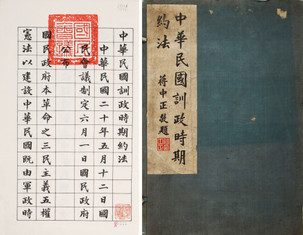 中華民國訓政時期
約法
蔣中正敬題
中華民國訓政時期約法
中華民國二十年五月十二日國
民會議制定六月一日國民政府
公布
國民政府本革命之三民主義五權
憲法以建設中華民國既由軍政時